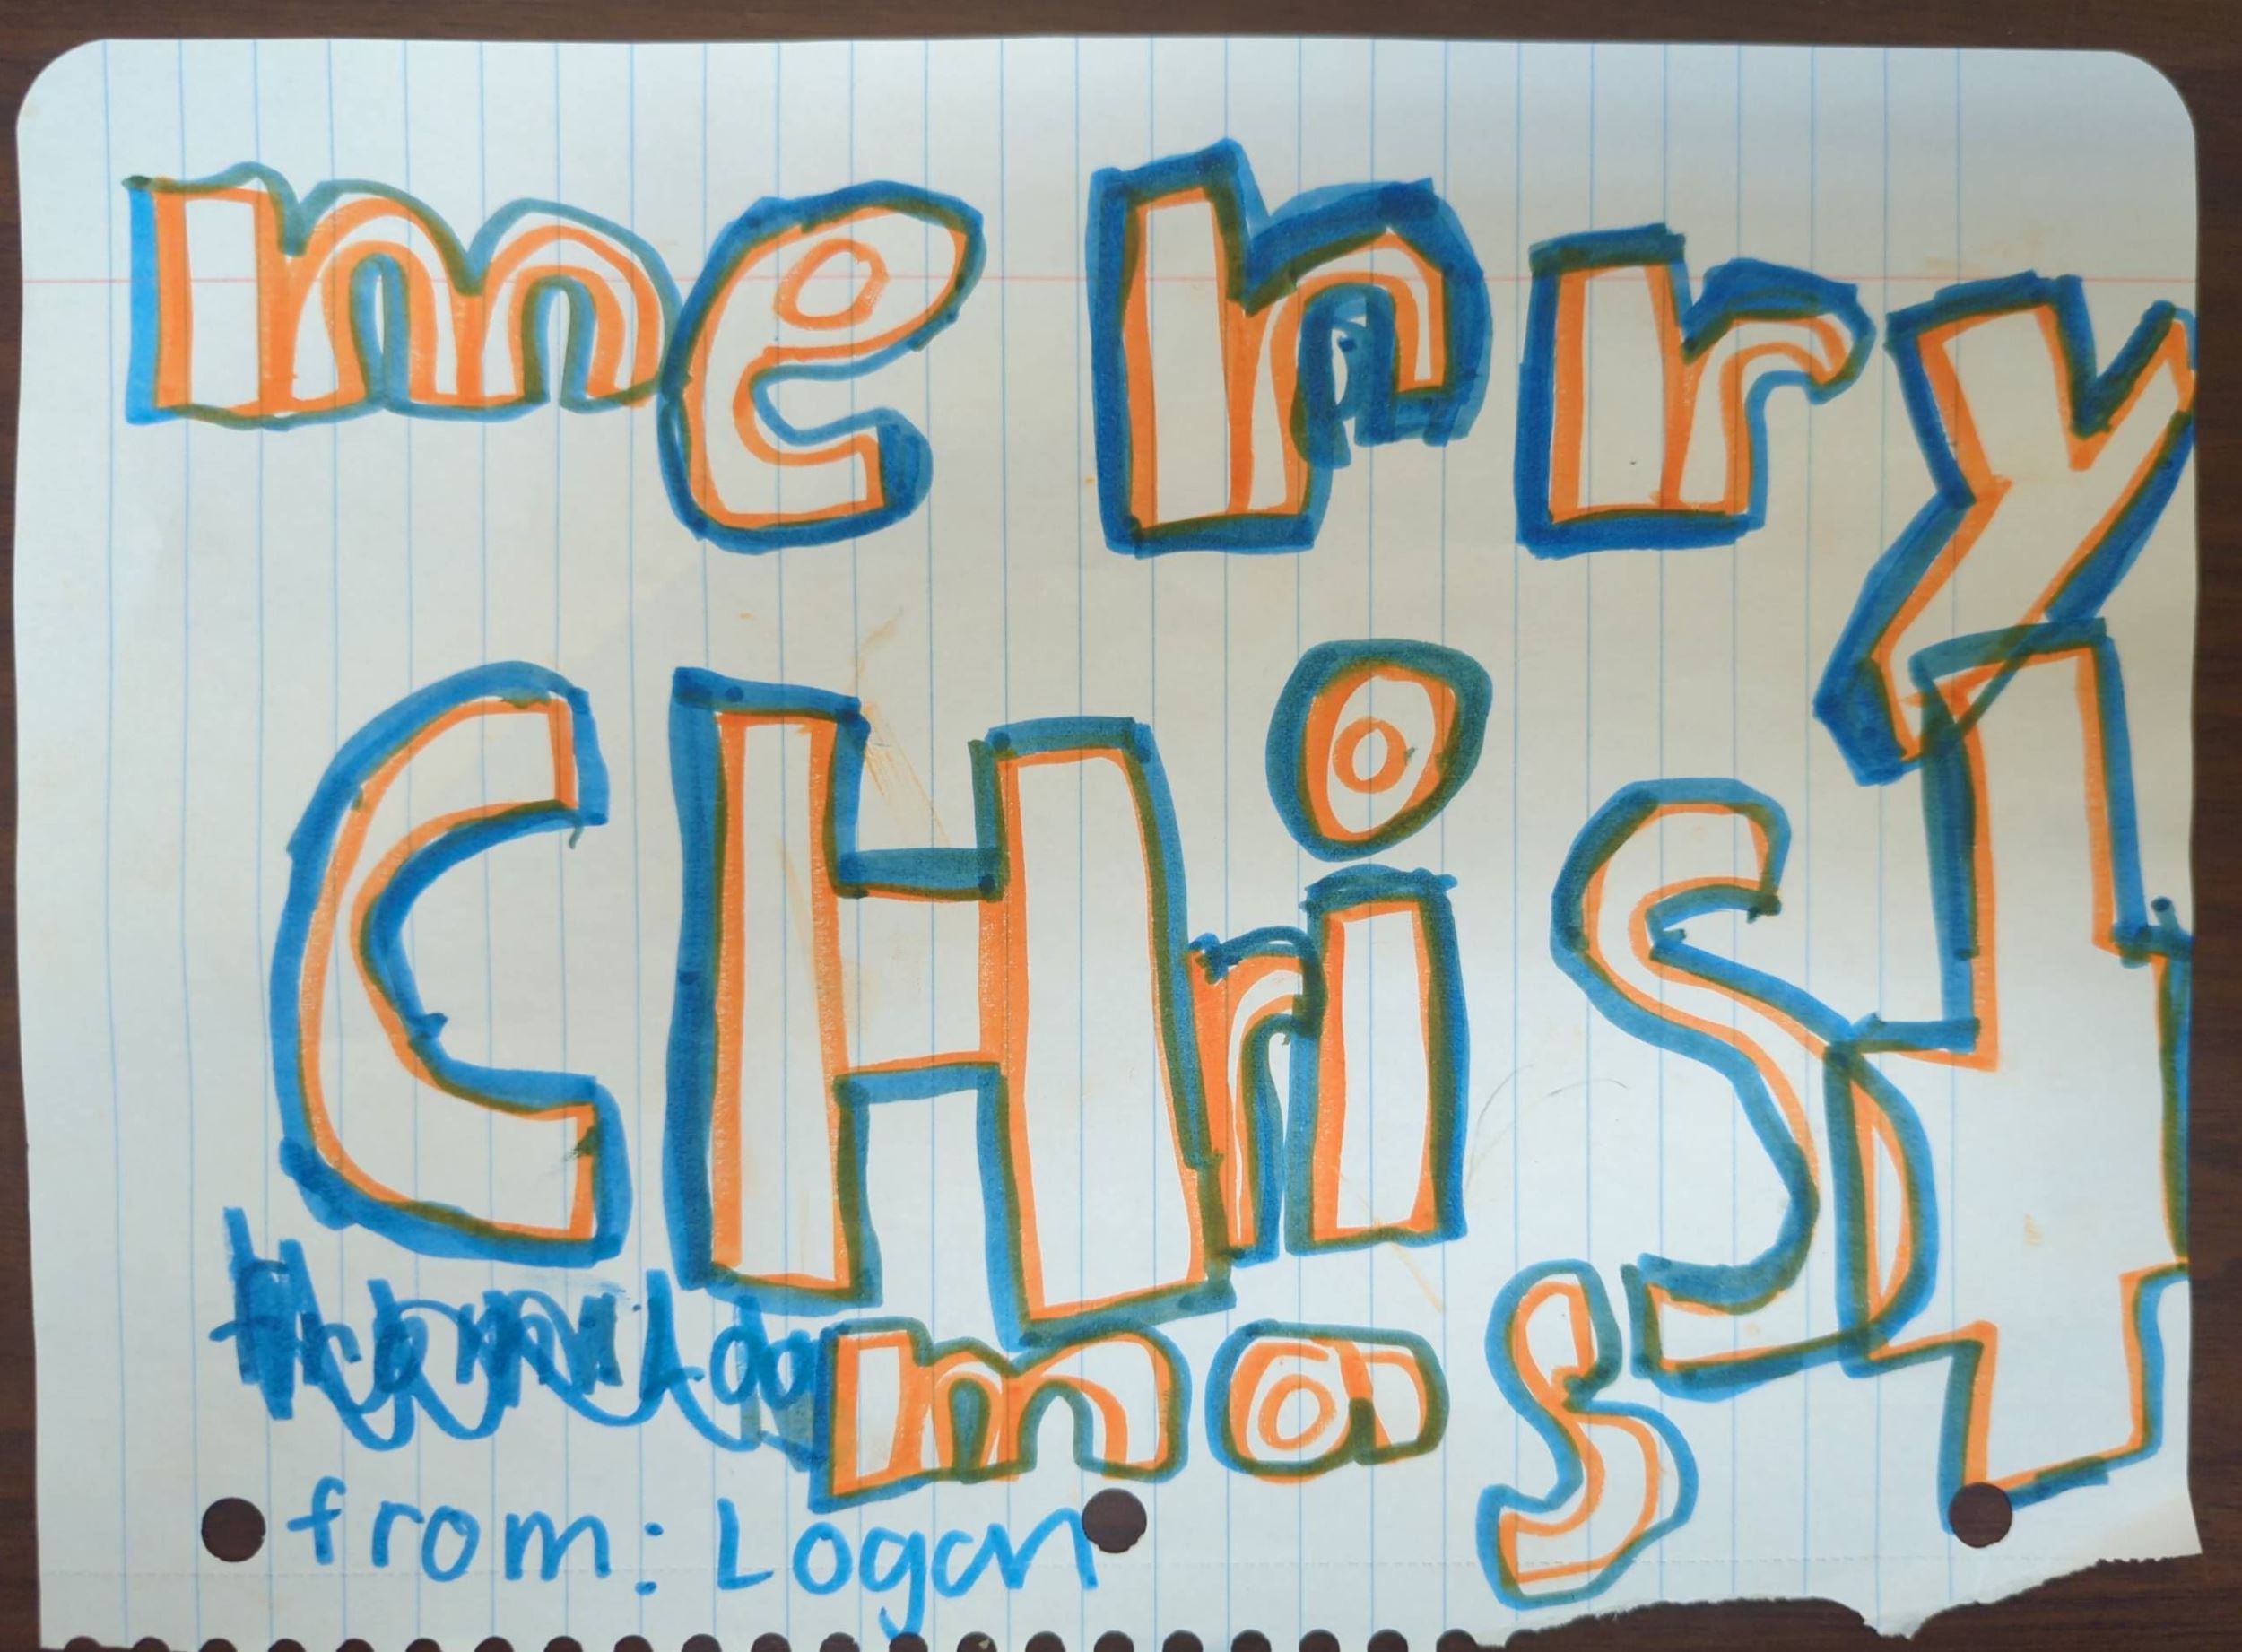 merry
CHrist
mas
from: Logan